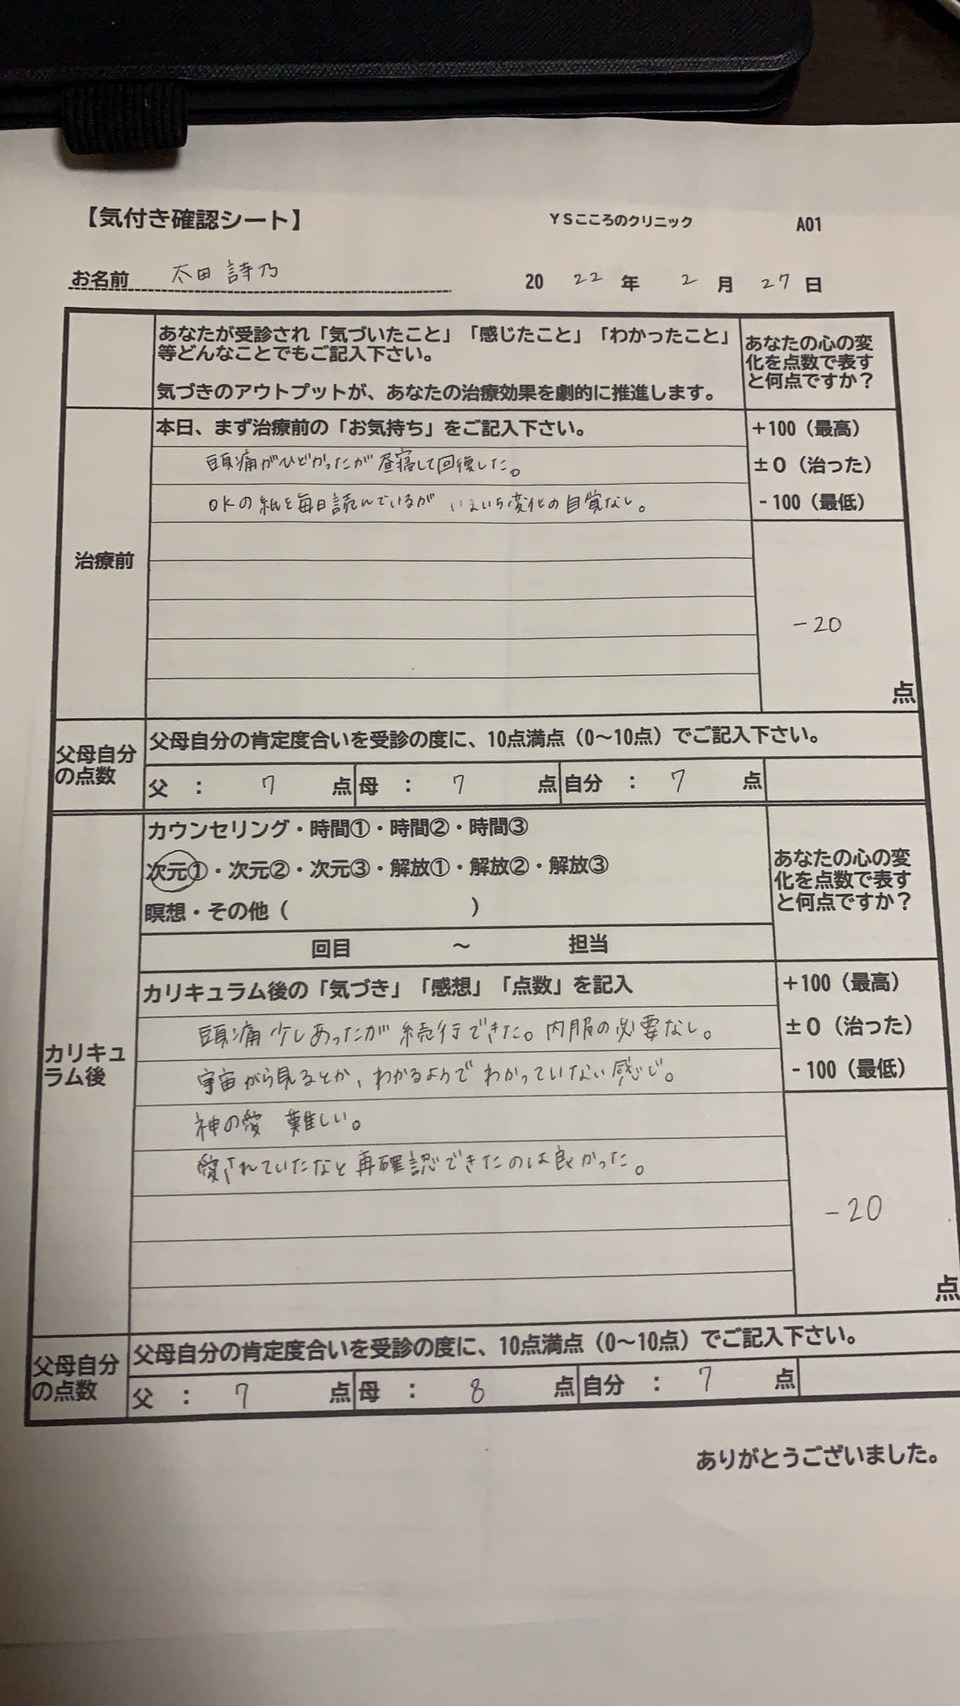 【気付き確認シート】 YSこころのクリニック A01
お名前 太田 詩乃 20 22 年 2 月 27 日
あなたが受診され「気づいたこと」「感じたこと」「わかったこと」
等どんなことでもご記入下さい。
気づきのアウトプットが、あなたの治療効果を劇的に推進します。
あなたの心の変
化を点数で表す
と何点ですか?
治療前
本日、まず治療前の「お気持ち」をご記入下さい。
頭痛がひどかったが昼寝して回復した。
OKの紙を毎日読んでいるが いまいち変化の自覚なし。
+100(最高)
±0(治った)
-100(最低)
-20
点
父母自分
の点数
父母自分の肯定度合いを受診の度に、10点満点(0〜10点)でご記入下さい。
父 : 7 点 母 : 7 点 自分 : 7 点
カリキュ
ラム後
カウンセリング・時間①・時間②・時間③
次元①・次元②・次元③・解放①・解放②・解放③
瞑想・その他( )
回目 〜 担当
あなたの心の変
化を点数で表す
と何点ですか?
カリキュラム後の「気づき」「感想」「点数」を記入
頭痛少しあったが続行できた。内服の必要なし。
宇宙から見るとか、わかるようで わかっていない感じ。
神の愛 難しい。
愛されていたなと再確認できたのは良かった。
+100(最高)
±0(治った)
-100(最低)
-20
点
父母自分
の点数
父母自分の肯定度合いを受診の度に、10点満点(0〜10点)でご記入下さい。
父 : 7 点 母 : 8 点 自分 : 7 点
ありがとうございました。